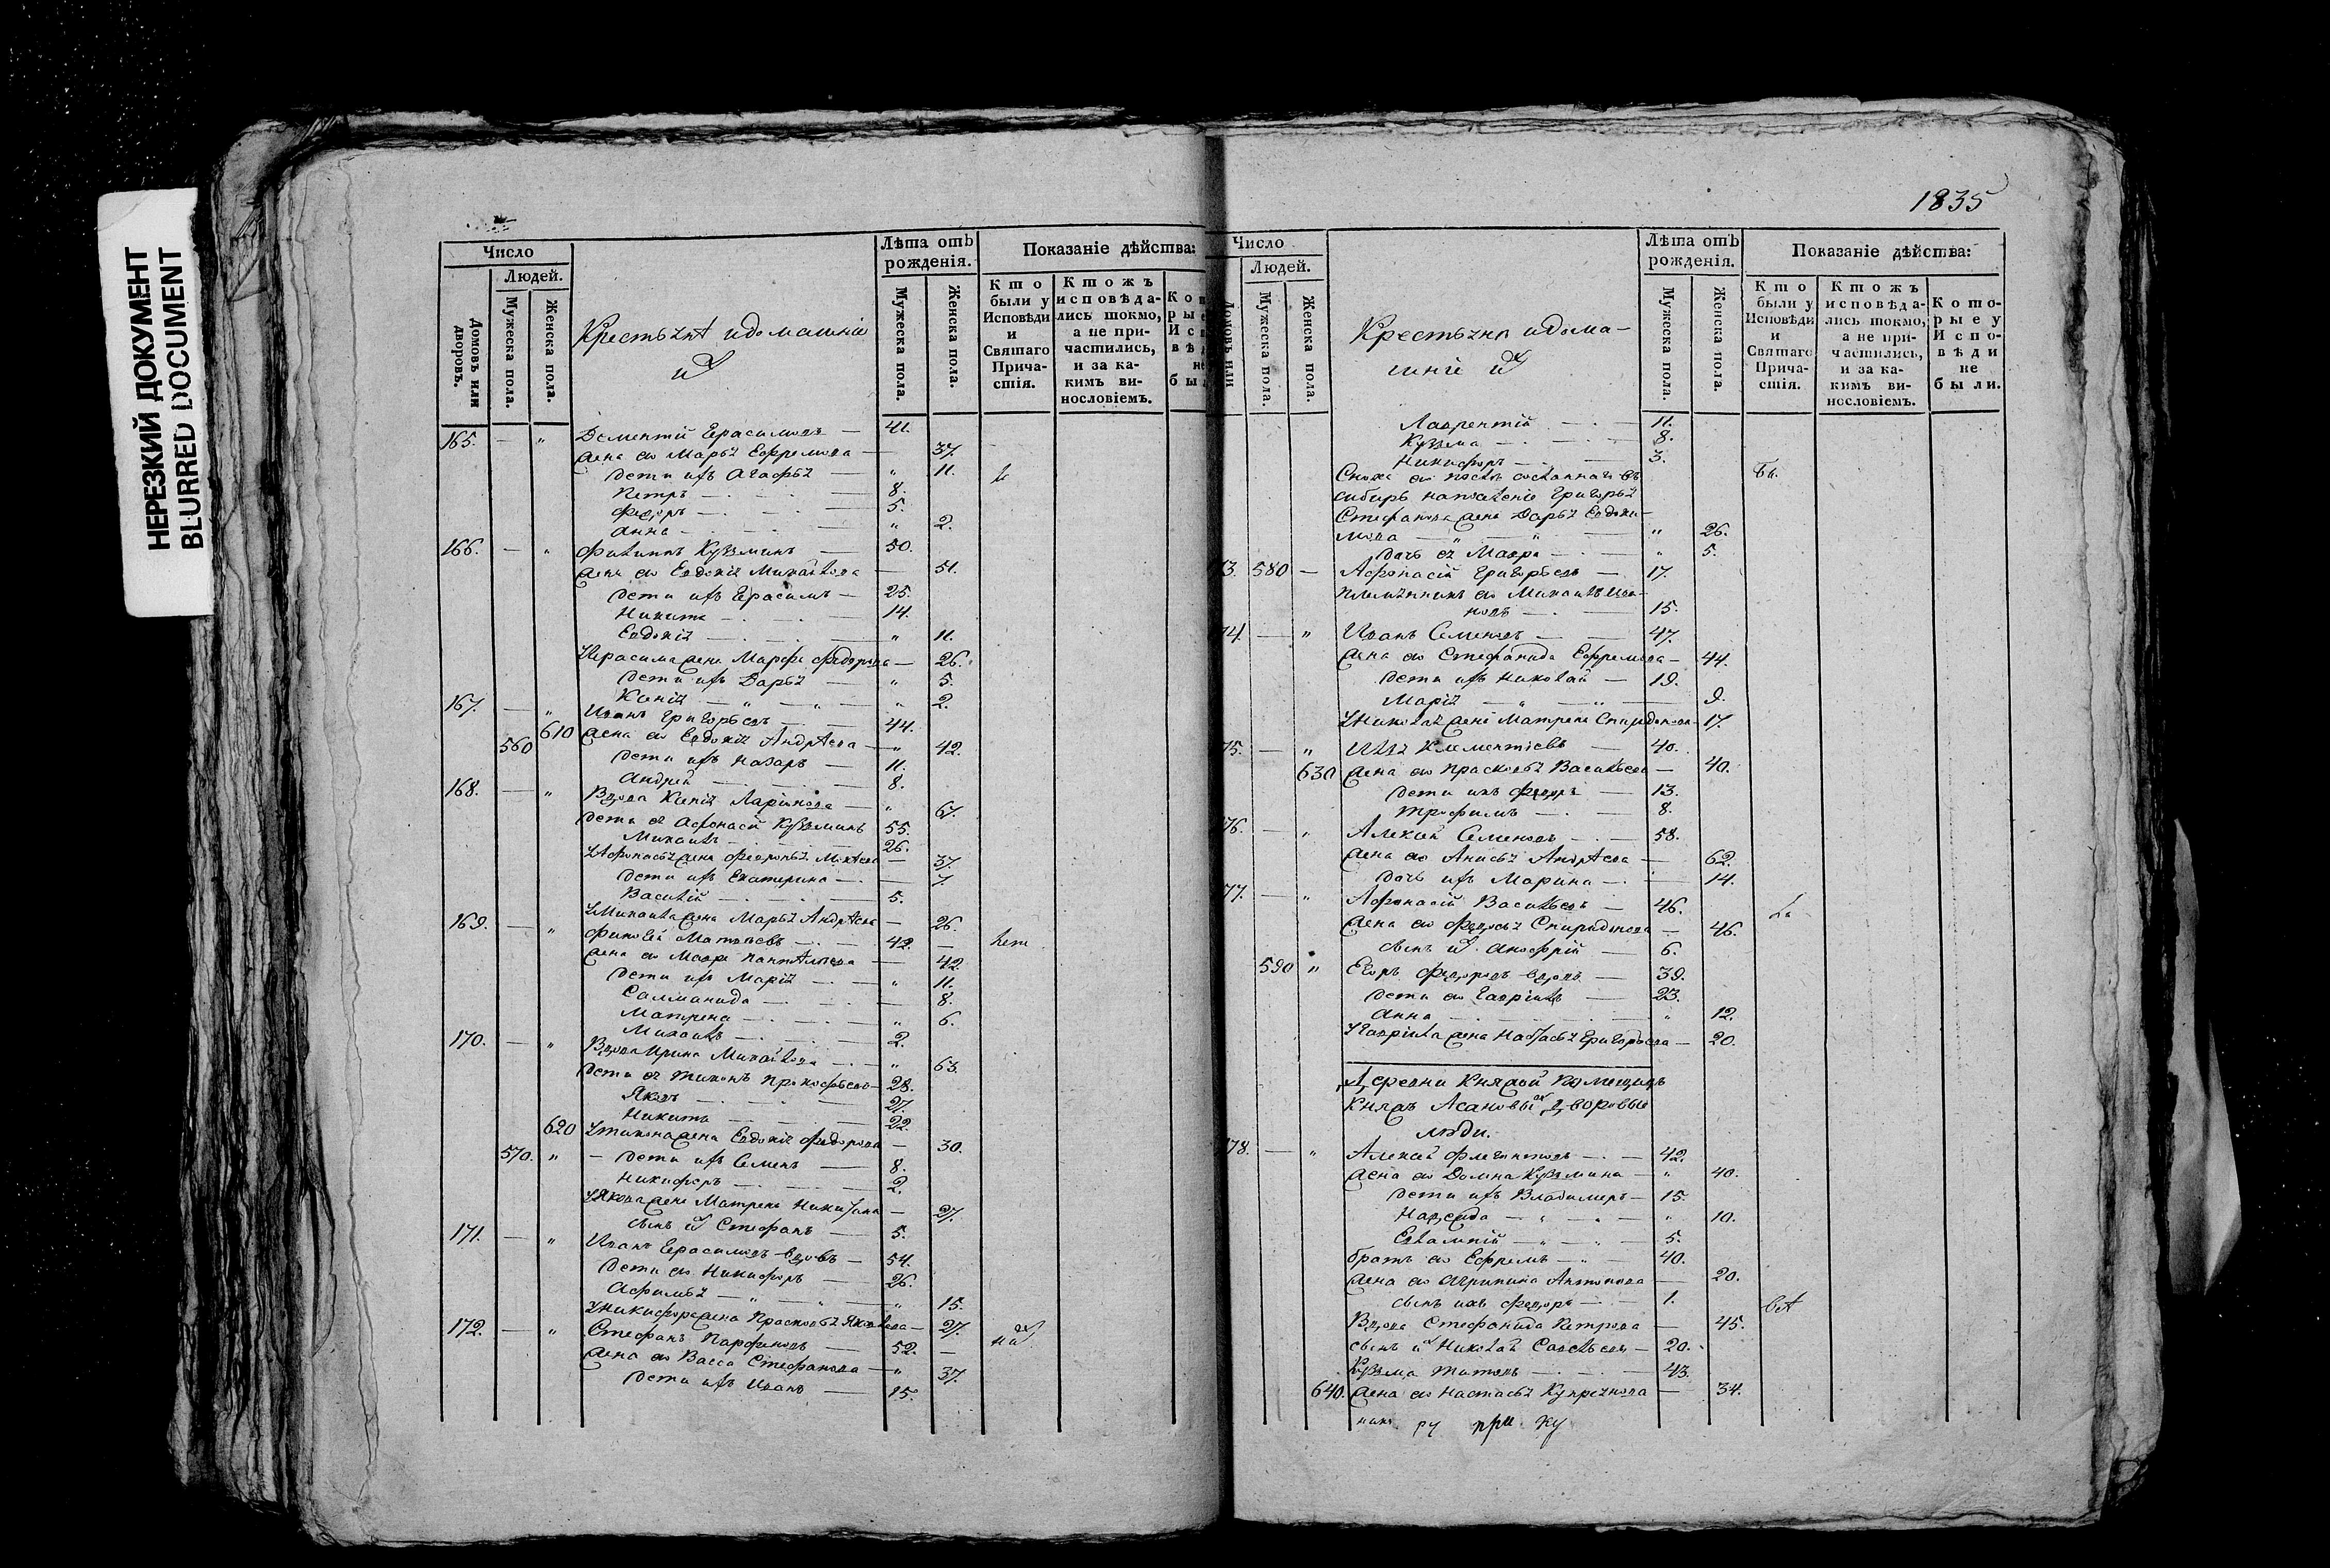 НЕРЕЗКИЙ ДОКУМЕНТ
BLURRED DOCUMENT
Число
Людей.
Домовъ или дворовъ.
Мужеска пола.
Женска пола.
Крестьяне и домашніе
их
Лѣта отъ рожденія.
Мужеска пола.
Женска пола.
Показаніе дѣйства:
Кто были у Исповѣди и Святаго Причастія.
Ктожъ исповѣдались токмо, а не причастились, и за какимъ винословіемъ.
165. — " Дементій Герасимовъ — 41.
жена ево Марья Ефремова — 37.
дети ихъ Агафья — " 11.
Петръ — 8.
Федоръ — 5.
Анна — " 2.
166. — " Филиппъ Кузминъ — 50.
жена ево Евдокія Михайлова — 51.
дети ихъ Герасимъ — 25.
Никита — 14.
Евдокія — " 11.
У Герасима жена Марфа Федорова — 26.
дети ихъ Дарья — " 5.
Ксенія — " 2.
167. — " Иванъ Григорьевъ — 44.
610 жена ево Евдокія Андреева — " 42.
560 дети ихъ Назаръ — 11.
Андрей — 8.
168. — " Вдова Ксенія Ларіонова — " 67.
дети ея Афонасій Кузминъ 55.
Михаилъ — 26.
У Афонасья жена Федосья — 37.
дети ихъ Екатерина — 7.
Василій — 5.
У Михаила жена Марья Андреева — 26.
169. — " Матвѣевъ — 42. —
жена ево Мавра — 42.
дети ихъ Марія — " 11.
Саломанида — 8.
Матрена — " 6.
Михаилъ — 2.
170. — " Вдова Ирина Михайлова — " 63.
дети ея Тихонъ Прокофьевъ — 28.
Яковъ — 27.
Никита — 22.
620 У Тихона жена Евдокія Федорова — 30.
570. " — дети ихъ Семенъ — 8.
Никифоръ — 2.
У Якова жена Матрена — 27.
сынъ их Стефанъ — 5.
171. — " Иванъ Герасимовъ вдовъ — 54.
дети ево Никифоръ — 26.
Афимья — " 15.
У Никифора жена Прасковья Яковлева — 27.
172. — " Стефанъ Парфеновъ — 52. —
жена ево Васса Стефанова — " 37.
дети ихъ Иванъ — 15.
1835
Число
Людей.
Мужеска пола.
Женска пола.
Крестьяна и дома-
шніе их
Лѣта отъ рожденія.
Мужеска пола.
Женска пола.
Показаніе дѣйства:
Кто были у Исповѣди и Святаго Причастія.
Ктожъ исповѣдались токмо, а не причастились, и за какимъ винословіемъ.
Которые у Исповѣди не были.
Лаврентій — 11.
Кузьма — 8.
Никифоръ — 3.
Сноха ево после сосланнаго въ
сибирь на поселеніе Григорья
Стефанова жена Дарья Евдоки-
мова — " 26.
дочь ея Мавра — " 5.
73. 580 — Афонасій Григорьевъ — 17.
племянникъ ево Михаилъ Ива-
новъ — 15.
74. — " Иванъ Семеновъ — 47.
жена ево Стефанида Ефремова — 44.
дети ихъ Николай — 19.
Марія — " 9.
У Николая жена Матрена Спиридонова — 17.
75. — " Илья Клементіевъ — 40.
630 жена ево Прасковья Васильева — 40.
дети ихъ Федоръ — 13.
Трофимъ — 8.
76. — " Алексей Семеновъ — 58.
жена ево Анисья Андреева — 62.
дочь ихъ Марина — 14.
77. — " Афонасій Васильевъ — 46.
жена ево Федосья Спиридонова — 46.
сынъ их Анофрій — 6.
590 " Егоръ Федоровъ вдовъ — 39.
дети ево Гаврила — 23.
Анна — " 12.
У Гаврила жена Настасья Григорьева — 20.
Деревни Княжой помещиковъ
Князъ Асановых дворовые
люди.
78. — " Алексей — 42.
жена ево Домна Кузмина — " 40.
дети ихъ Владимеръ — 15.
Надежда — " 10.
Евлампій — 5.
братъ ево Ефремъ — 40.
жена ево Агрипина Антонова — 20.
сынъ ихъ Федоръ — 1.
Вдова Стефанида Петрова — 45.
сынъ ея Николай Савельевъ — 20.
Кузьма Титовъ — 43.
640. жена ево Настасья — 34.